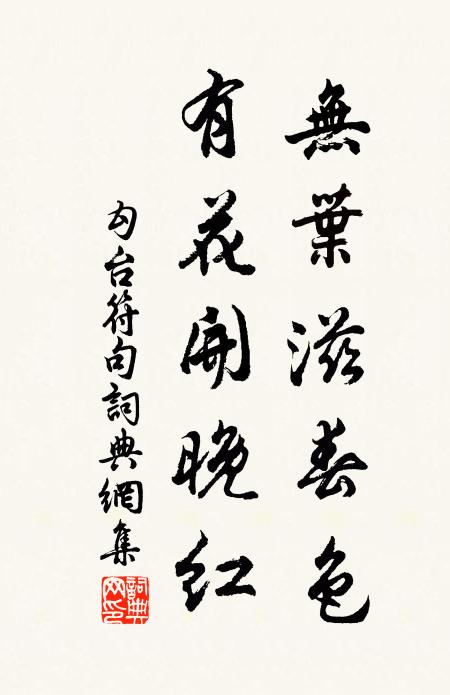 無葉滋春色
有花開晚紅
勾台符句詞典網集
詞典網印